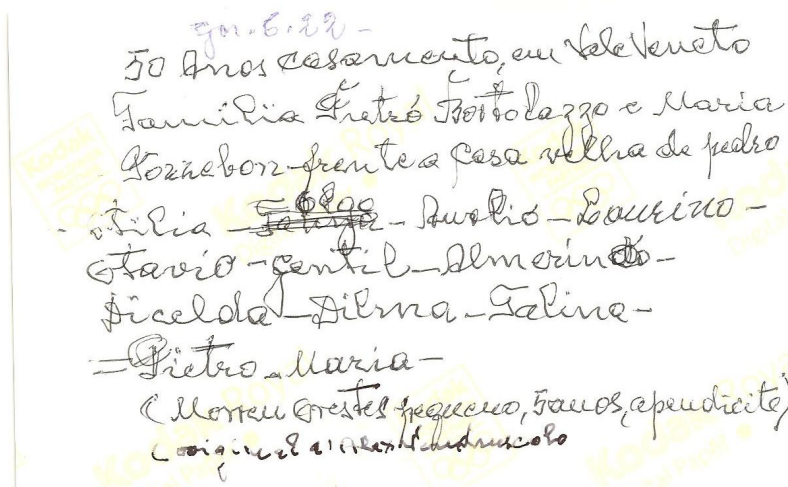 50 Anos casamento, em Vale Veneto
Familia Pietró Bortolazzo e Maria
Pozzebon-frente a casa velha de pedro
- Itilia - Olga - Aurelió - Lourino -
Otavio - Gentil - Almerindo -
Dicelda - Dilma - Talina -
= Pietro - Maria -
(Morreu Orestes pequeno, 5 anos, apendicite)
(original Vendruscolo